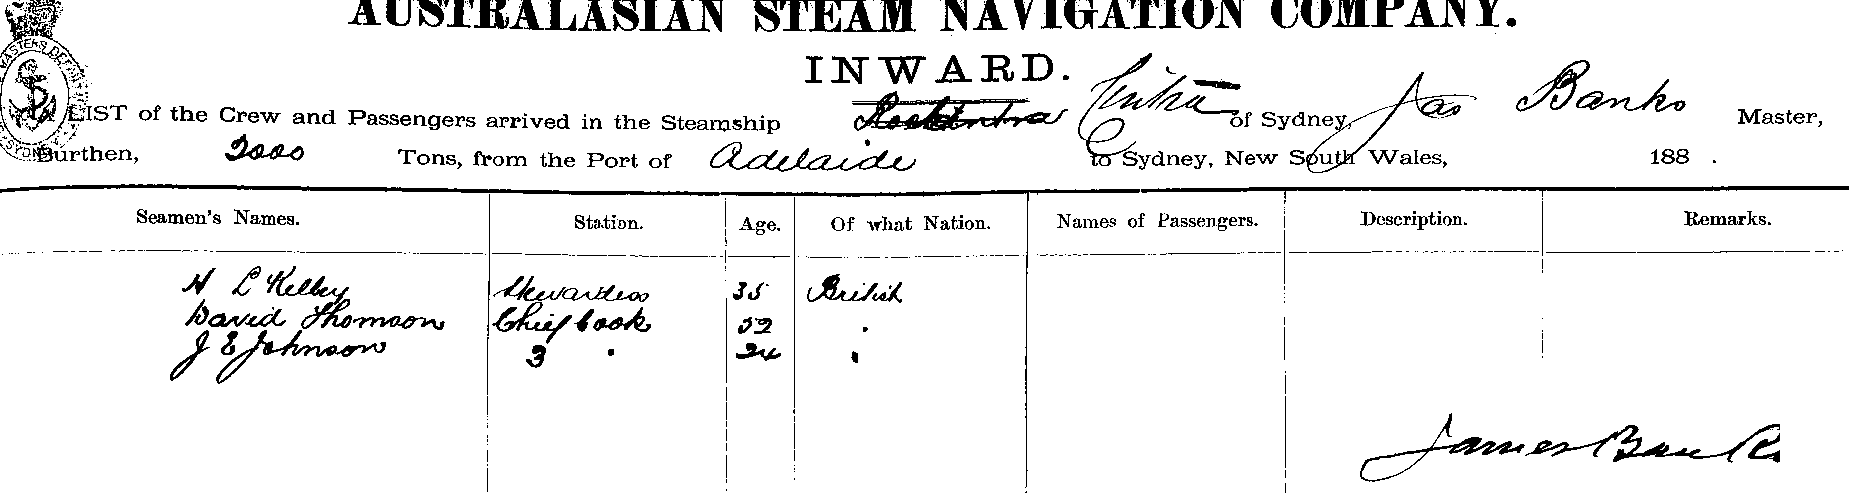 AUSTRALASIAN STEAM NAVIGATION COMPANY.
INWARD.
LIST of the Crew and Passengers arrived in the Steamship Cintra of Sydney, Jas Banks Master,
Burthen, 2000 Tons, from the Port of Adelaide to Sydney, New South Wales, 188 .
Seamen's Names. Station. Age. Of what Nation. Names of Passengers. Description. Remarks.
H L Kelley Stewardess 35 British
David Thomson Chief Cook 52 "
J E Johnson 3 " 24 "
James Banks